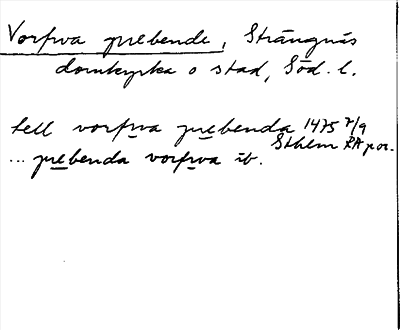 Vorfrva prebende, Strängnäs
domkyrka o stad, Söd. l.
tell vorfrva prebenda 1475 7/9
Sthlm RA por.
... prebenda vorfrva ib.